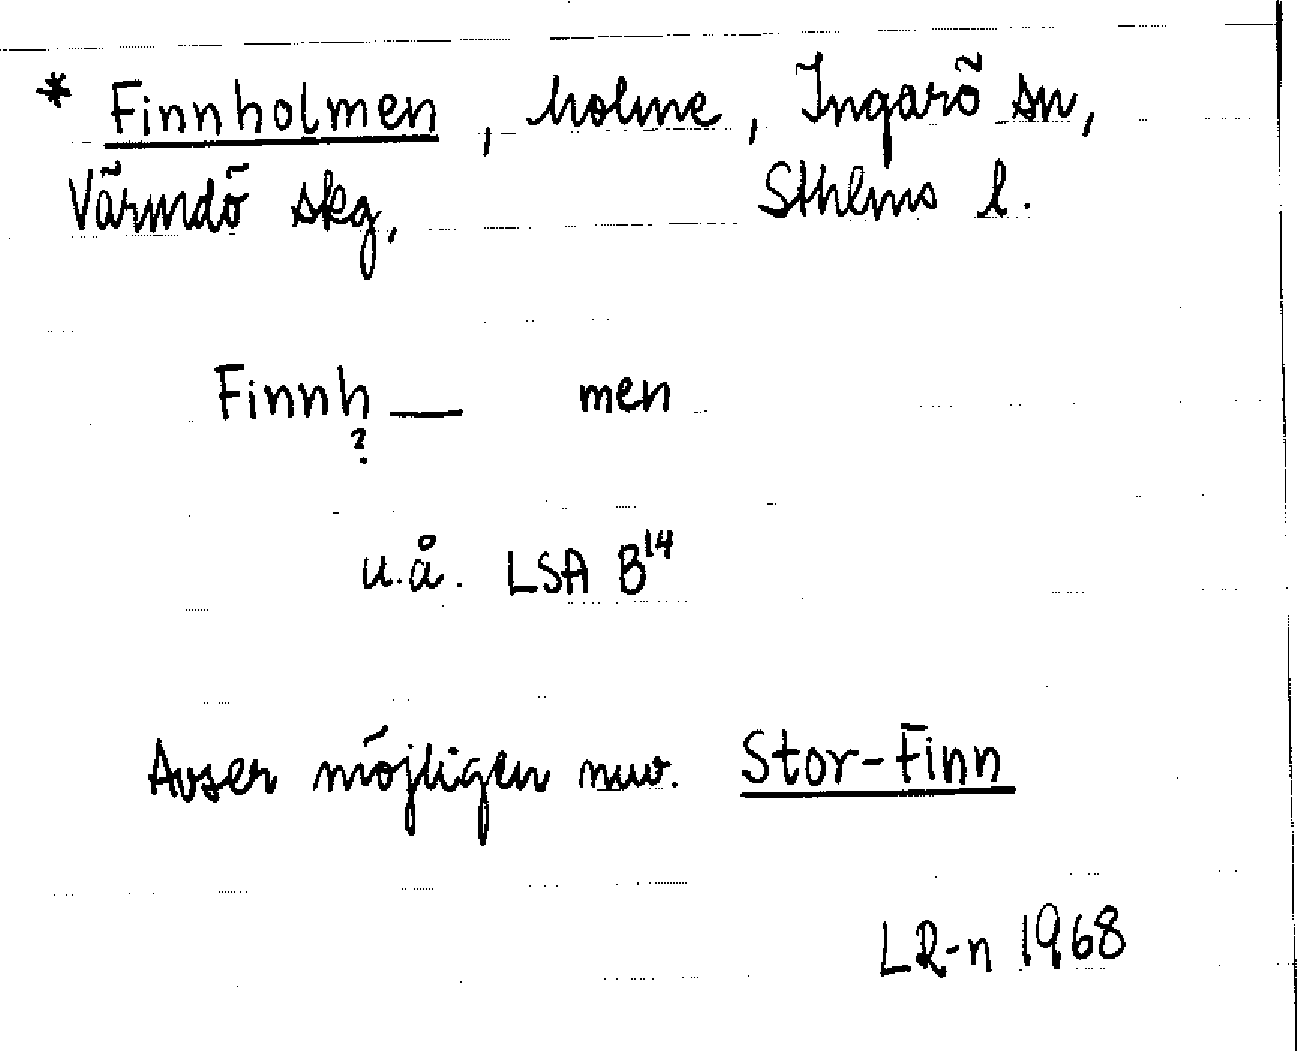 * Finnholmen, holme, Ingarö sn,
Värmdö skg, Sthlms l.
Finnh__ men
?
u.å. LSA B14
Avser möjligen nuv. Stor-Finn
LR-n 1968